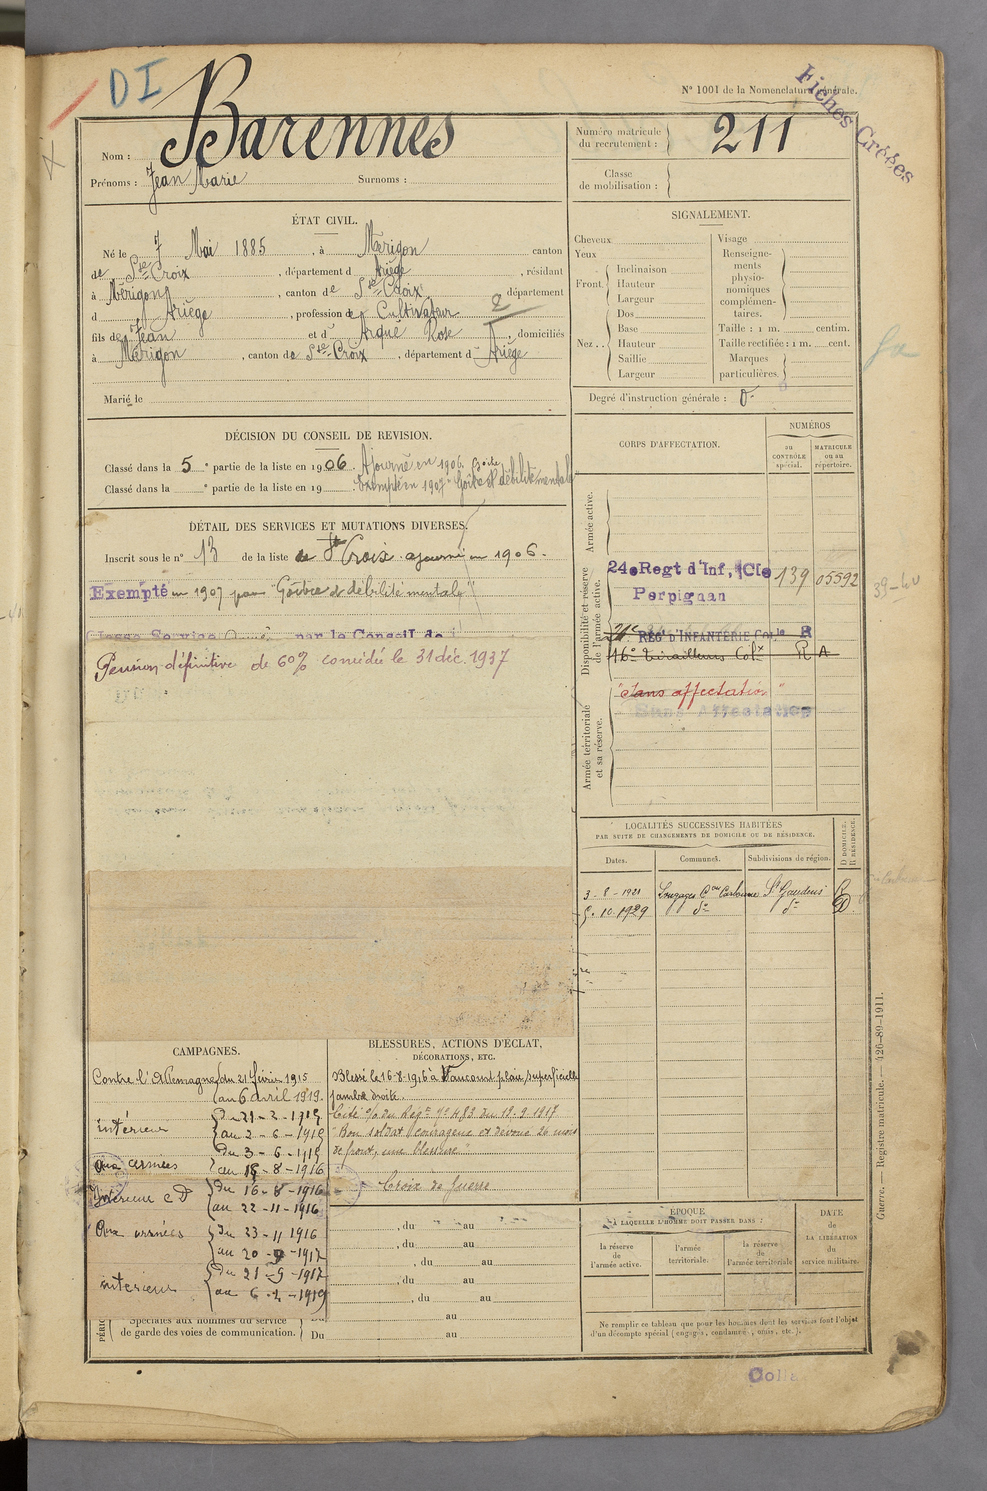 DI
N° 1001 de la Nomenclature générale.
Fiches Créées
Nom : Barennes
Prénoms : Jean Marie Surnoms :
Numéro matricule du recrutement : 211
Classe de mobilisation :
ÉTAT CIVIL.
Né le 7 Mai 1885, à Mérigon canton
de Ste Croix, département d Ariège, résidant
à Mérigon, canton de Ste Croix, département
d Ariège, profession de Cultivateur 2
fils de Jean et d Arqué Rose, domiciliés
à Mérigon, canton de Ste Croix, département d Ariège
Marié le
SIGNALEMENT.
Cheveux
Yeux
Front. Inclinaison
Hauteur
Largeur
Nez .. Dos
Base
Hauteur
Saillie
Largeur
Visage
Renseignements physionomiques complémentaires.
Taille : 1 m. centim.
Taille rectifiée : 1 m. cent.
Marques particulières.
Degré d'instruction générale : 0
DÉCISION DU CONSEIL DE REVISION.
Classé dans la 5e partie de la liste en 1906. Ajourné en 1906. Goître
Classé dans la e partie de la liste en 19 . Exempté en 1907 Goître et débilité mentale
DÉTAIL DES SERVICES ET MUTATIONS DIVERSES.
Inscrit sous le n° 13 de la liste de Ste Croix. ajourné en 1906.
Exempté en 1907 pour "Goître et débilité mentale"
Classe Service par le Conseil de
Pension définitive de 60% concédée le 31 déc. 1937
CORPS D'AFFECTATION.
NUMÉROS
au CONTRÔLE spécial.
MATRICULE ou au répertoire.
Armée active.
Disponibilité et réserve de l'armée active.
24e Regt d'Inf. Cle Perpignan 139 05592
39-40
RÉG. D'INFANTERIE Colle R
16e Tirailleurs Colx R A
"sans affectation"
Sans Affectation
Armée territoriale et sa réserve.
LOCALITÉS SUCCESSIVES HABITÉES
PAR SUITE DE CHANGEMENTS DE DOMICILE OU DE RÉSIDENCE.
Dates. Communes. Subdivisions de région. D DOMICILE. R RÉSIDENCE.
3-8-1921 Con Carbonne St Gaudens
5-10-1929 do do D
CAMPAGNES.
Contre l'Allemagne du 21 février 1915
au 6 avril 1919.
intérieur du 21-2-1915
au 2-6-1915
aux armées du 3-6-1915
au 15-8-1916
Intérieur C D du 16-8-1916
au 22-11-1916
Aux armées du 23-11 1916
au 20-9-1917
intérieur du 21-9-1917
au 6-4-1919
BLESSURES, ACTIONS D'ÉCLAT,
DÉCORATIONS, ETC.
Blessé le 16-8-1916 à plaie superficielle
jambe droite.
Cité o/o du Regt N° 483 du 18.9.1917
"Bon soldat courageux et dévoué 26 mois
de front, une blessure"
Croix de guerre
, du au
, du au
, du au
, du au
, du au
au
Du au
Spéciales aux hommes du service
de garde des voies de communication.
ÉPOQUE
À LAQUELLE L'HOMME DOIT PASSER DANS :
la réserve de l'armée active.
l'armée territoriale.
la réserve de l'armée territoriale
DATE de LA LIBÉRATION du service militaire.
Ne remplir ce tableau que pour les hommes dont les services font l'objet
d'un décompte spécial (engagés, condamnés, omis, etc.).
Guerre. — Registre matricule. — 426-89-1911.